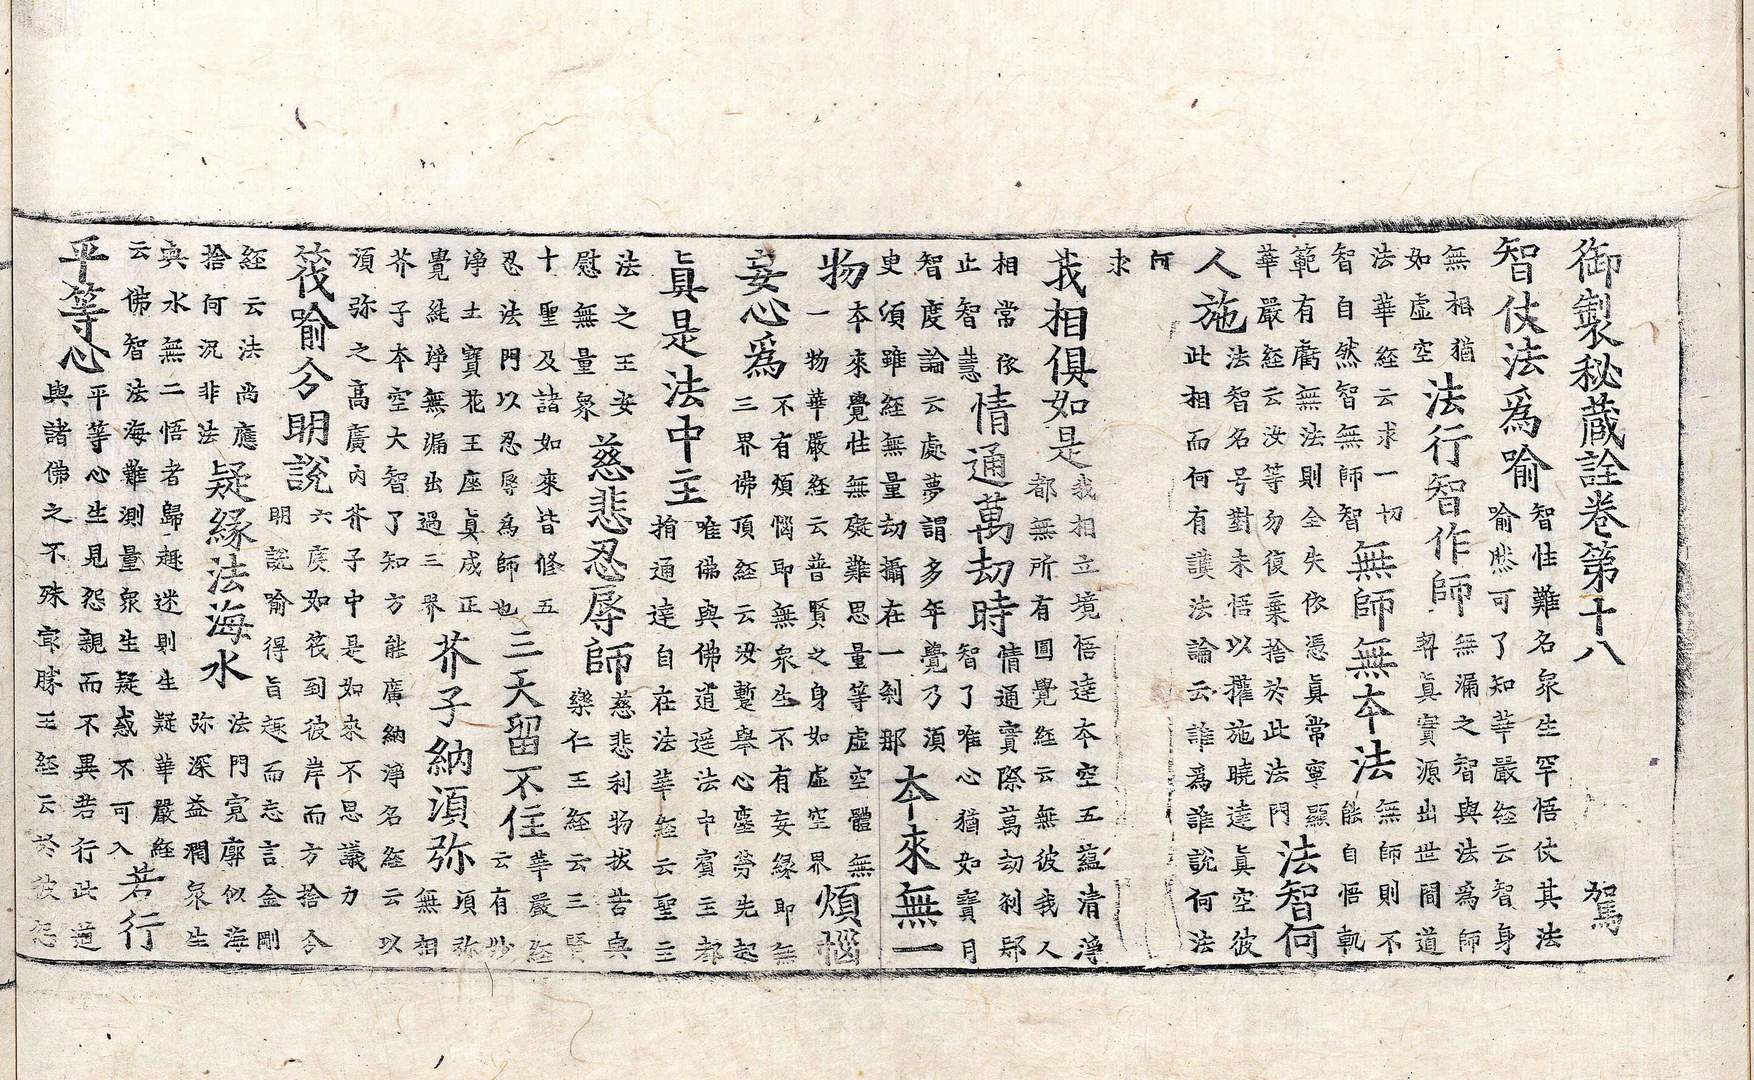 御製秘蔵詮卷第十八　駕
智仗法爲喻
智性難名衆生罕悟仗其法
喻然可了知華嚴經云智身
無相猶
如虛空
法行智作師
無漏之智與法爲師
契眞實源出世間道
法華經云求一切
智自然智無師智
無師無本法
無師則不
能自悟軌
範有虧無法則全失依憑眞常寧顯
華嚴經云汝等勿復棄捨於此法門
法智何
人施
法智名号對未悟以攉施曉達眞空彼
此相而何有護法論云誰爲誰說何法
何
求
我相俱如是
我相立境悟達本空五蘊清淨
都無所有圓覺經云無彼我人
相常依
止智慧
情通萬劫時
情通實際萬劫刹那
智了唯心猶如寶月
智度論云處夢謂多年覺乃湏
史湏雖經無量劫攝在一刹那
本來無一
物
本來覺性無礙難思量等虛空體無
一物華嚴經云普賢之身如虛空界
煩惱
妄心爲
不有煩惱即無衆生不有妄緣即無
三界佛頂經云汝暫舉心塵勞先起
眞是法中主
唯佛與佛逍遥法中賓主都
捐通達自在法華經云聖主
法之王安
慰無量衆
慈悲忍辱師
慈悲利物拔苦與
樂仁王經云三賢
十聖及諸如來皆修五
忍法門以忍辱爲師也
三天留不住
華嚴經
云有妙
淨土寶花王座眞成正
覺純淨無漏出過三界
芥子納湏弥
湏弥
無相
芥子本空大智了知方能廣納淨名經云以
湏弥之高廣內芥子中是如來不思議力
筏喻兮明說
六度如筏到彼岸而方捨兮
明說喻得旨趣而忘言金剛
經云法尚應
捨何況非法
疑緣法海水
法門寬廓似海
弥深益潤衆生
與水無二悟者歸趣迷則生疑華嚴經
云佛智法海難測量衆生疑惑不可入
若行
平等心
平等心生見怨親而不異若行此道
與諸佛之不殊㝡勝王經云於彼怨